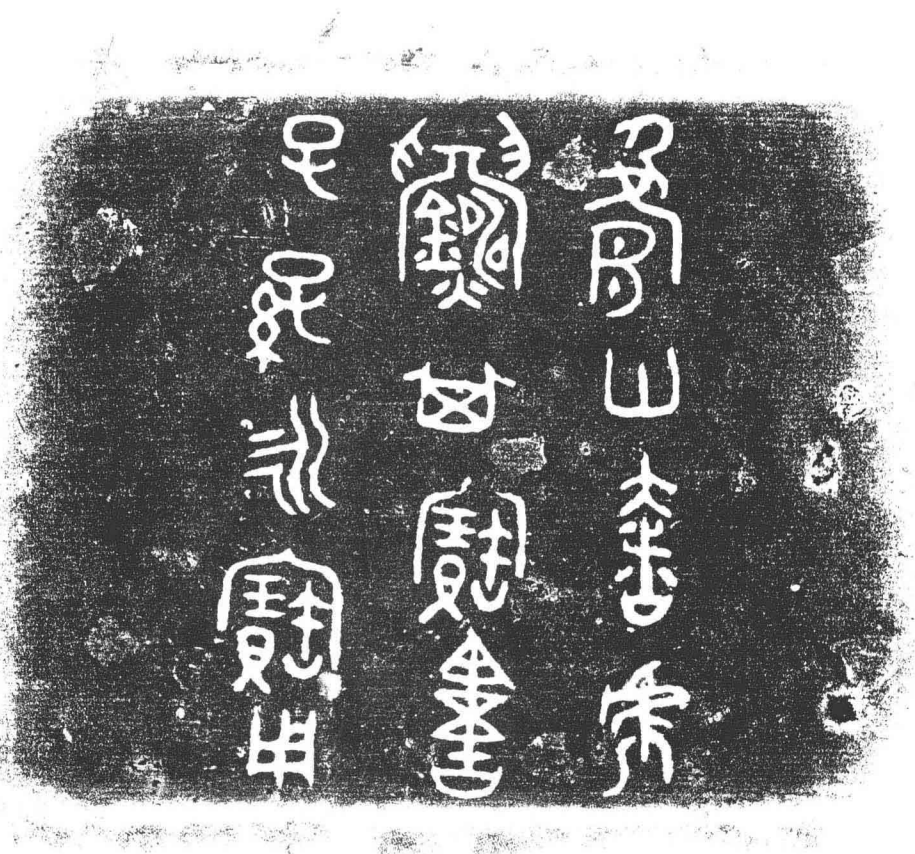 山奢虎
鑄其寶簠
子孫永寶用